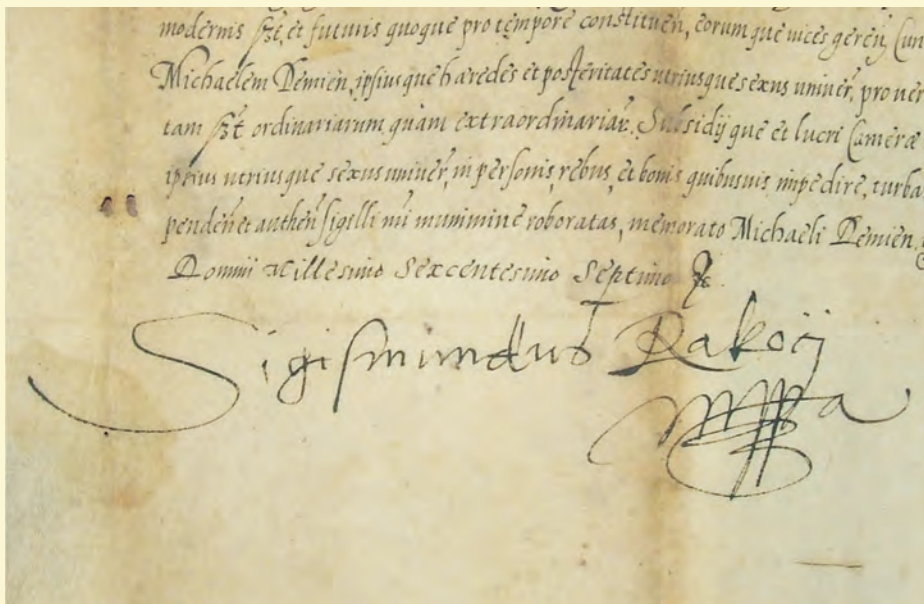 modernis szt, et futuris quoque pro tempore constituen, eorumque uices geren, Cun
Michaelem Demien, ipsiusque hæredes et posteritates utriusque sexus uniuer, pro uer
tam szt ordinariarum quàm extraordinariar. Subsidijque et lucri Cameræ
ipsius utriusque sexus uniuer, in personis, rebus, et bonis quibusuis impedire, turba
penden et authen sigilli nri munimine roboratas, memorato Michaeli Demien,
Domini Millesimo Sexcentesimo Septimo
Sigismundus Rakocij
mppa